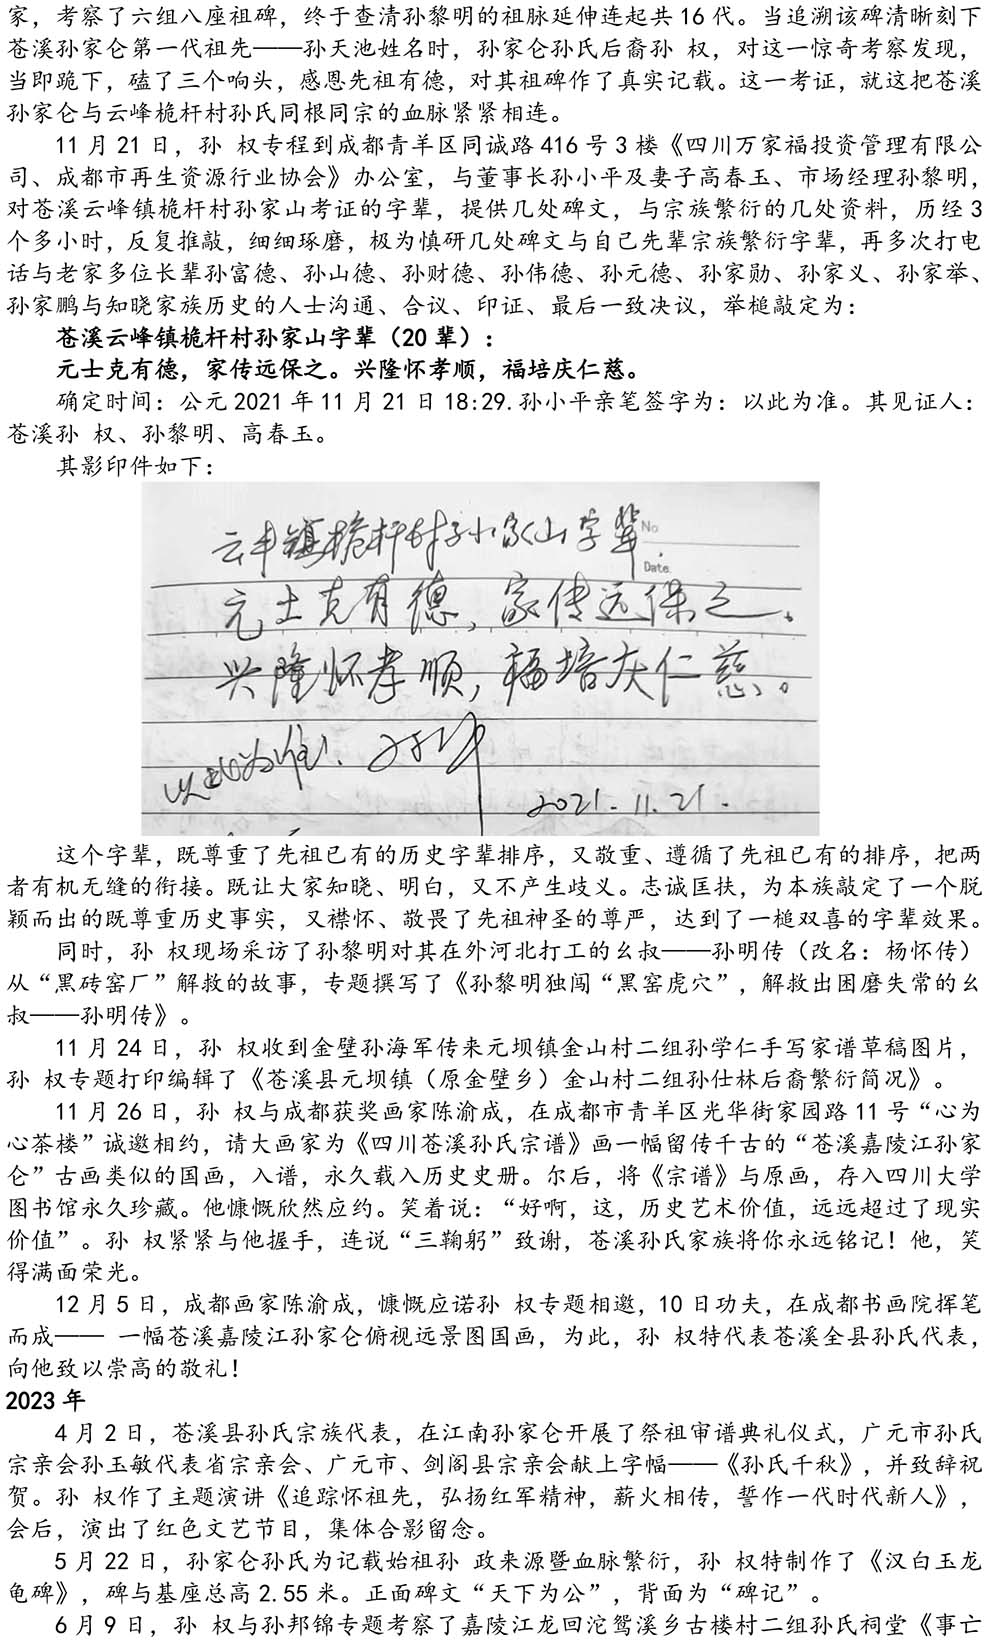 家，考察了六组八座祖碑，终于查清孙黎明的祖脉延伸连起共16代。当追溯该碑清晰刻下
苍溪孙家仑第一代祖先——孙天池姓名时，孙家仑孙氏后裔孙 权，对这一惊奇考察发现，
当即跪下，磕了三个响头，感恩先祖有德，对其祖碑作了真实记载。这一考证，就这把苍溪
孙家仑与云峰桅杆村孙氏同根同宗的血脉紧紧相连。
11月21日，孙 权专程到成都青羊区同诚路416号3楼《四川万家福投资管理有限公
司、成都市再生资源行业协会》办公室，与董事长孙小平及妻子高春玉、市场经理孙黎明，
对苍溪云峰镇桅杆村孙家山考证的字辈，提供几处碑文，与宗族繁衍的几处资料，历经3
个多小时，反复推敲，细细琢磨，极为慎研几处碑文与自己先辈宗族繁衍字辈，再多次打电
话与老家多位长辈孙富德、孙山德、孙财德、孙伟德、孙元德、孙家勋、孙家义、孙家举、
孙家鹏与知晓家族历史的人士沟通、合议、印证、最后一致决议，举槌敲定为：
苍溪云峰镇桅杆村孙家山字辈（20辈）：
元士克有德，家传远保之。兴隆怀孝顺，福培庆仁慈。
确定时间：公元2021年11月21日18:29.孙小平亲笔签字为：以此为准。其见证人：
苍溪孙 权、孙黎明、高春玉。
其影印件如下：
云丰镇桅杆村孙小家山字辈.
No
Date.
元士克有德、家传远保之、
兴隆怀孝顺，福培庆仁慈。
以此为准！
2021.11.21.
这个字辈，既尊重了先祖已有的历史字辈排序，又敬重、遵循了先祖已有的排序，把两
者有机无缝的衔接。既让大家知晓、明白，又不产生歧义。志诚匡扶，为本族敲定了一个脱
颖而出的既尊重历史事实，又襟怀、敬畏了先祖神圣的尊严，达到了一槌双喜的字辈效果。
同时，孙 权现场采访了孙黎明对其在外河北打工的幺叔——孙明传（改名：杨怀传）
从“黑砖窑厂”解救的故事，专题撰写了《孙黎明独闯“黑窑虎穴”，解救出困磨失常的幺
叔——孙明传》。
11月24日，孙 权收到金壁孙海军传来元坝镇金山村二组孙学仁手写家谱草稿图片，
孙 权专题打印编辑了《苍溪县元坝镇（原金壁乡）金山村二组孙仕林后裔繁衍简况》。
11月26日，孙 权与成都获奖画家陈渝成，在成都市青羊区光华街家园路11号“心为
心茶楼”诚邀相约，请大画家为《四川苍溪孙氏宗谱》画一幅留传千古的“苍溪嘉陵江孙家
仑”古画类似的国画，入谱，永久载入历史史册。尔后，将《宗谱》与原画，存入四川大学
图书馆永久珍藏。他慷慨欣然应约。笑着说：“好啊，这，历史艺术价值，远远超过了现实
价值”。孙 权紧紧与他握手，连说“三鞠躬”致谢，苍溪孙氏家族将你永远铭记！他，笑
得满面荣光。
12月5日，成都画家陈渝成，慷慨应诺孙 权专题相邀，10日功夫，在成都书画院挥笔
而成—— 一幅苍溪嘉陵江孙家仑俯视远景图国画，为此，孙 权特代表苍溪全县孙氏代表，
向他致以崇高的敬礼！
2023年
4月2日，苍溪县孙氏宗族代表，在江南孙家仑开展了祭祖审谱典礼仪式，广元市孙氏
宗亲会孙玉敏代表省宗亲会、广元市、剑阁县宗亲会献上字幅——《孙氏千秋》，并致辞祝
贺。孙 权作了主题演讲《追踪怀祖先，弘扬红军精神，薪火相传，誓作一代时代新人》，
会后，演出了红色文艺节目，集体合影留念。
5月22日，孙家仑孙氏为记载始祖孙 政来源暨血脉繁衍，孙 权特制作了《汉白玉龙
龟碑》，碑与基座总高2.55米。正面碑文“天下为公”，背面为“碑记”。
6月9日，孙 权与孙邦锦专题考察了嘉陵江龙回沱鸳溪乡古楼村二组孙氏祠堂《事亡